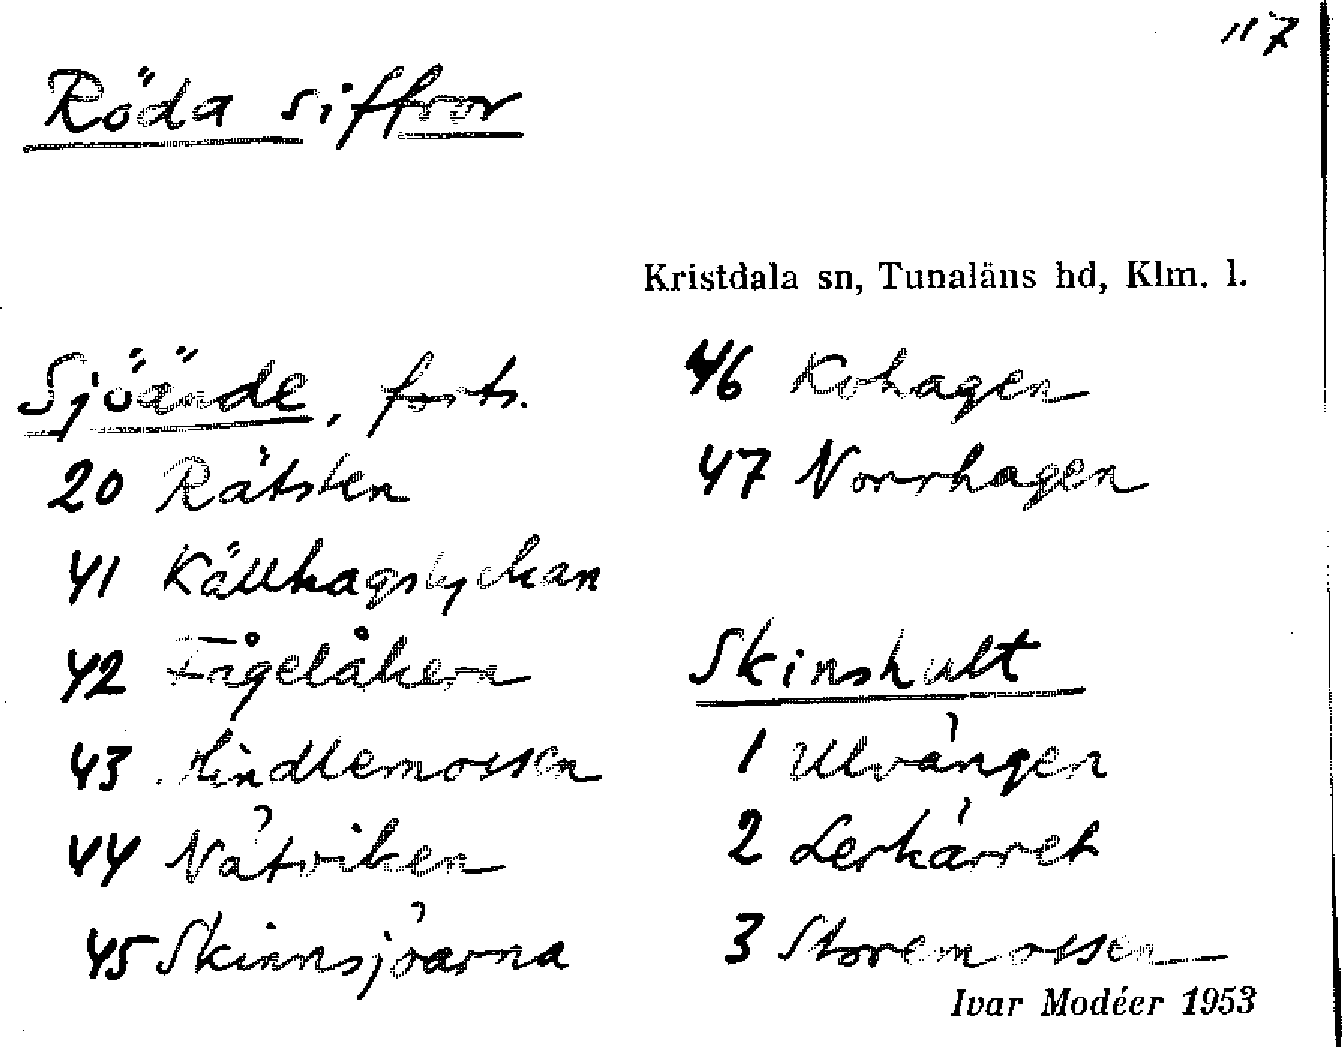 117
Röda siffror
Kristdala sn, Tunaläns hd, Klm. l.
Sjöände, forts.
20 Rätsten
41 Källhagslyckan
42 Fågelåkern
43 Hindlemossen
44 Nätviken
45 Skinnsjöarna
46 Kohagen
47 Norrhagen
Skinshult
1 Ulvängen
2 Lerkärret
3 Storemossen
Ivar Modéer 1953